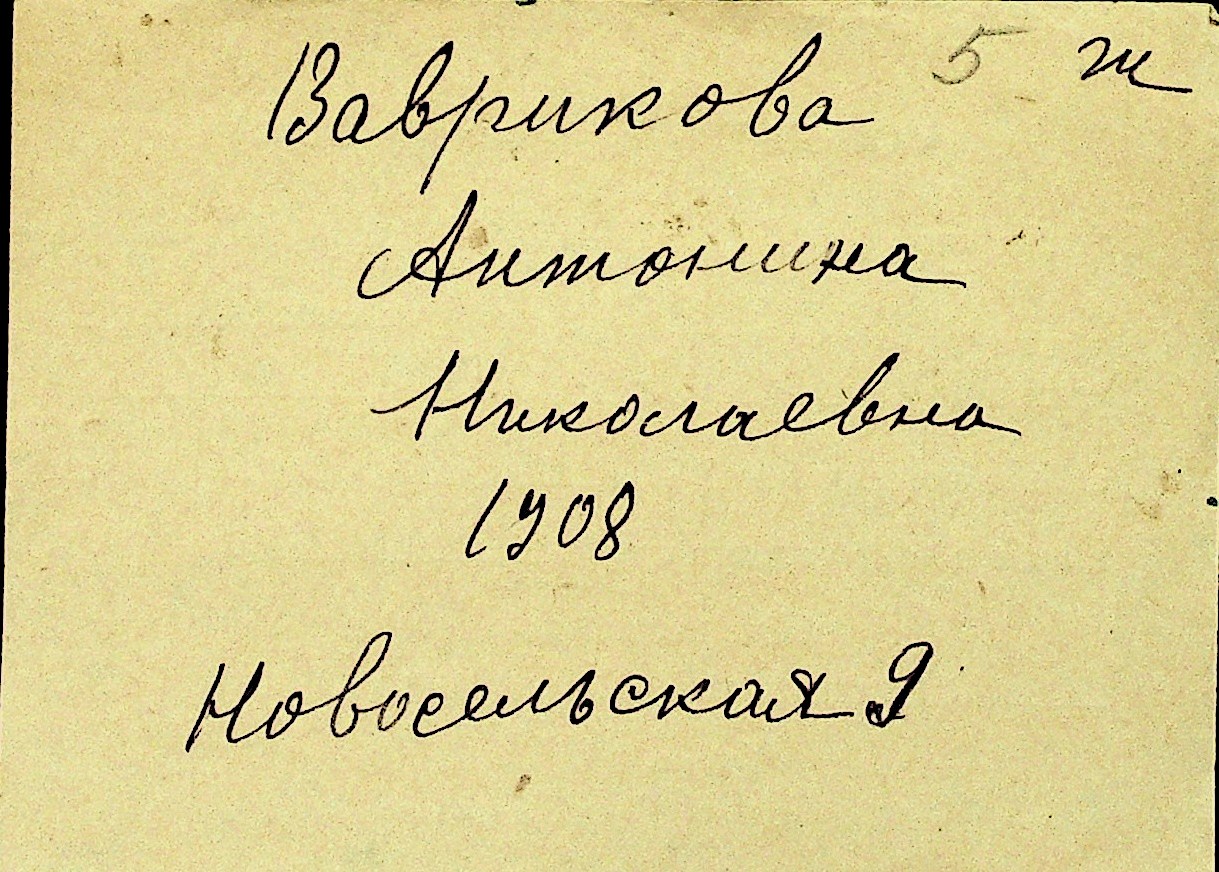 Ваврикова 5 ж
Антонина
Николаевна
1908
Новосельская 9